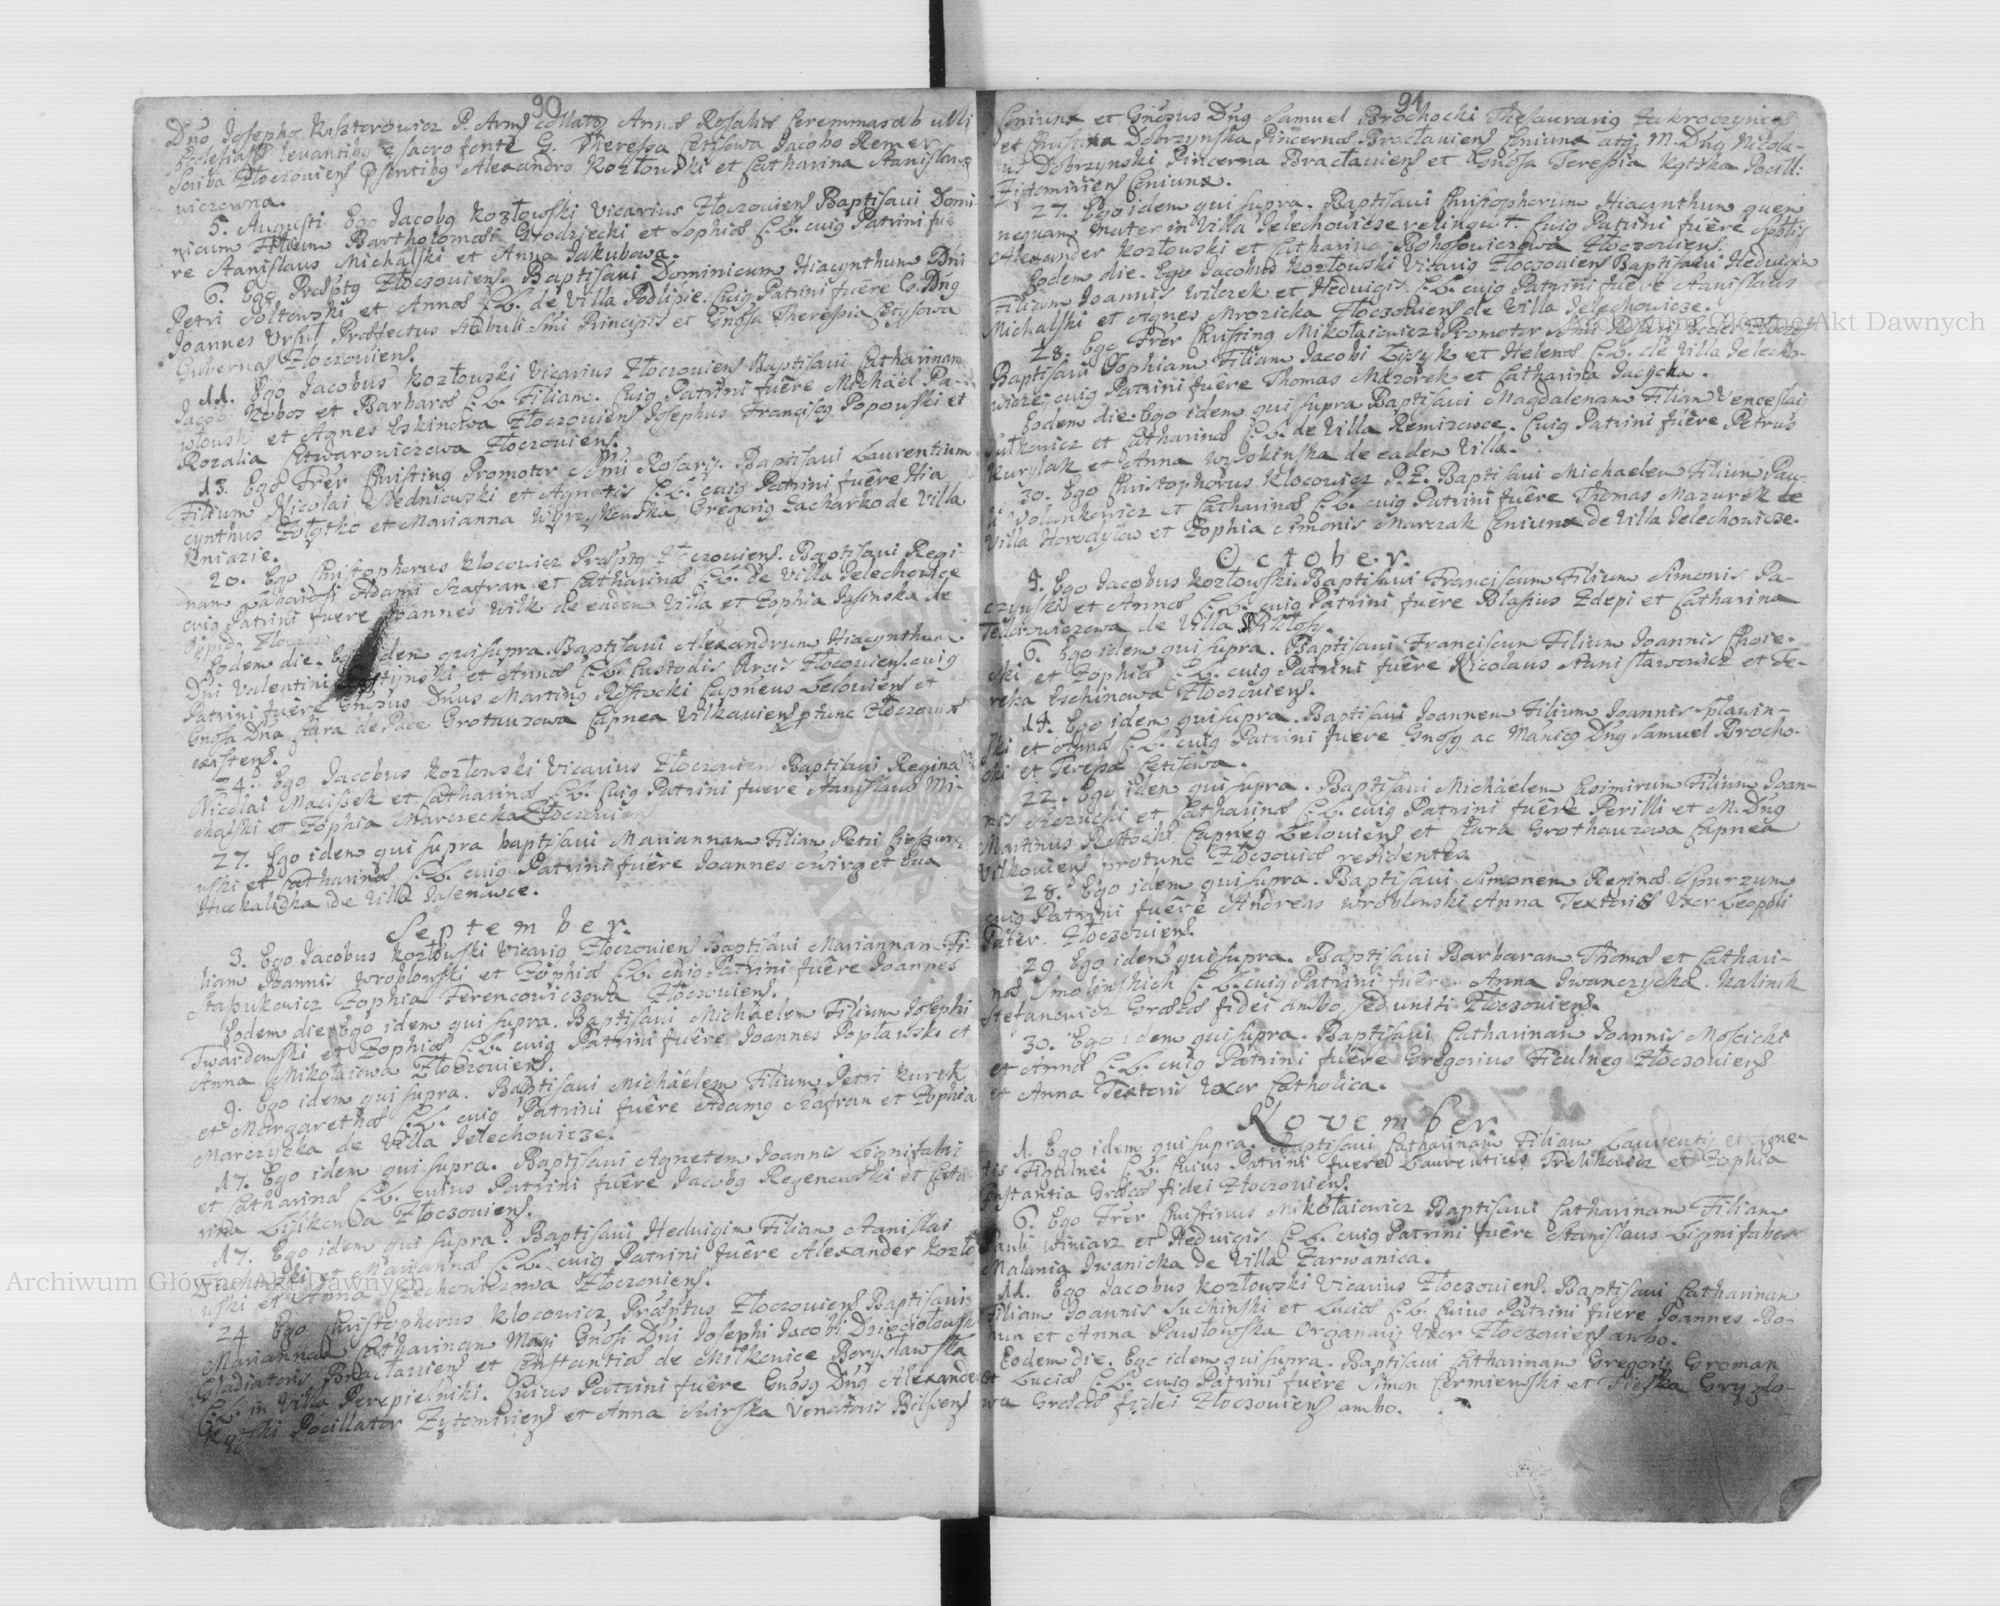 90
Dno Josepho Kaszterowicz P. Arm collato Annæ Rosaliæ ceremmas ab
Ecclesiæ levantibq e sacro fonte G. Theressa Cetisowa Jacobo Remer
Scriba Złoczoviens Psentibq Alexandro Kozłowski et Catharina Stanisław
wiczowna.
5. Augusti Ego Jacobq Kozłowski Vicarius Złoczoviens Baptisavi Domi
nicum Filium Bartholomæi Grodziecki et Sophiæ C.L. cuiq Patrini fue
re Stanislaus Michalski et Anna Jakubowa.
6. Ego Præsptq Złoczoviens. Baptisavi Dominicum Hiacynthum Dni
Petri Sołtowski et Annæ C.L. de Villa Podlipie. Cuiq Patrini fuêre G. Dnq
Joannes Ursul Præfectus Stabuli Smi Principis et Gnosa Theressia Cetysowa
Guberna Złoczoviens.
11. Ego Jacobus Kozłowski Vicarius Złoczoviens Baptisavi Catharinam
Jacobi Kobos et Barbaræ C.L. Filiam. Cuiq Patrini fuêre Michael Pa-
włowski et Agnes Eskinowa Złoczoviens Josephus Franciscq Popowski et
Rozalia Litwarowiczowa Złoczoviens.
13. Ego Frêr Christinq Promotor Smi Rosarij. Baptisavi Laurentium
Filium Nicolai Sledniowski et Agnetis C.L. cuiq Patrini fuêre Hia
cynthus Zołytko et Marianna Wyrzykowska, Gregoriq Zacharko de Villa
Kniazie.
20. Ego Christophorus Klocowicz Præsptq Złoczoviens. Baptisavi Regi-
nam Adami Szafran et Catharinæ C.L. de Villa Jelechowice
cuiq Patrini fuere Joannes Wilk de eadem Villa et Zophia Jasinska de
Eodem die. Ego idem qui supra. Baptisavi Alexandrum Hiacynthum
Dni Valentini et Annæ C.L. Custodis Arcis Złoczoviens. cuiq
Patrini fuêre Gnosus Dnus Martinq Rostocki Capneus Zelowiens et
Gnosa Dna Clara de Pace Grotauzowa Capnea Wilkawiens ptunc Złoczowiæ
existens.
24. Ego Jacobus Kozłowski Vicarius Złoczoviens Baptisavi Regina
Nicolai Maciszek et Catharinæ C.L. Cuiq Patrini fuere Stanislaus Mi-
chalski et Zophia Marczecka Złoczoviens
27. Ego idem qui supra baptisavi Mariannam Filiam Petri
wski et Catharinæ C.L. cuiq Patrini fuêre Joannes Swirq et Eva
Huckalicka de Villa Jasenowce.
September.
3. Ego Jacobus Kozłowski Vicariq Złoczoviens Baptisavi Mariannam Fi-
liam Joannis Wroblowski et Zophiæ C.L. cuiq Patrini fuêre Joannes
Stabukowicz Zophia Ferencowiczowa Złoczoviens.
Eodem die Ego idem qui supra. Baptisavi Michaelem Filium Josephi
Twardowski et Zophiæ C.L. cuiq Patrini fuêre Joannes Popławski et
Anna Mikołaiowa Złoczoviens.
9. Ego idem qui supra. Baptisavi Michaelem Filium Petri Kurek
et Margarethæ C.L. cuiq Patrini fuêre Adamq Szafran et Zophia
Marczycka de Villa Jelechowicze.
17. Ego idem qui supra. Baptisavi Agnetem Joannis Lignifabri
et Catharinæ C.L. cuius Patrini fuêre Jacobq Regenowski et Cata
rina Lisikowa Złoczoviens.
17. Ego idem qui supra. Baptisavi Hedvigim Filiam Stanislai
et Mariannæ C.L. cuiq Patrini fuêre Alexander Kozło
wski et Anna Złoczoviens.
24 Ego Christophorus Klocowicz Præsptus Złoczoviens Baptisavi
Mariannam Catharinam Magi Gnosi Dni Josephi Jacobi Dzięciołowski
Gladiatoris Bracłaviens et Constantiæ de Milkowice Borysławska
C.L. in Villa Perepielniki. Cuius Patrini fuêre Gnosq Dnq Alexander
Kątski Pocillator Zytomiriens et Anna Swirska Venatoris Bilscens
91
Coniunx et Gnosus Dnq Samuel Brochocki Thesaurariq Zakroczymiens
et Christina Dobrzynska Pincernæ Bracłaviens Coniunx atq M. Dnq Nikola-
us Dobrzynski Pincerna Bracłaviens et Gnosa Teressia Kątska Pocill:
Zytomiriens Coniunx.
27. Ego idem qui supra. Baptisavi Christophorum Hiacynthum quem
nequam Mater in Villa Jelechowicze relinquit. Cuiq Patrini fuêre Spblis
Alexander Kozłowski et Catharina Bohosiewiczowa Złoczoviens.
Eodem die. Ego Jacobus Kozłowski Vicariq Złoczoviens Baptisavi Hedvigim
Filiam Joannis Wilczek et Hedvigis C.L. cuiq Patrini fuêre Stanislaus
Michalski et Agnes Mrozicka Złoczoviens de Villa Jelechowicze.
28. Ego Frêr Christinq Mikołaiowicz Promotor Smi Rosarij
Baptisavi Sophiam Filiam Jacobi Łyzyk et Helenæ C.L. de Villa Jelecho-
wicze, cuiq Patrini fuêre Thomas Mazorek et Catharina Jacycha.
Eodem die. Ego idem qui supra Baptisavi Magdalenam Filiam Venceslai
Sutkowicz et Catharinæ C.L. de Villa Remizowce. Cuiq Patrini fuêre Petrus
Kurylak et Anna Wysokinska de eadem Villa.
30. Ego Christophorus Klocowicz P.Z. Baptisavi Michaelem Filium Pau-
li Wolunkowicz et Catharinæ C.L. cuiq Patrini fuêre Thomas Mazurek de
Villa Horodyłow et Zophia Simonis Marczak Coniunx de Villa Jelechowicze.
October.
5. Ego Jacobus Kozłowski. Baptisavi Franciscum Filium Simonis Pa-
czynski et Annæ C.L. cuiq Patrini fuêre Blasius Zdepi et Catharina
Fedorowiczowa de Villa
6. Ego idem qui supra. Baptisavi Franciscum Filium Joannis Choie-
cki et Zophiæ C.L. cuiq Patrini fuêre Nicolaus Stanisławowicz et Te-
resa Eschinowa Złoczoviens.
14. Ego idem qui supra. Baptisavi Joannem Filium Joannis Spławin-
ski et Annæ C.L. cuiq Patrini fuere Gnosq ac Manicq Dnq Samuel Brocho-
cki et Teresa Cetisowa.
22. Ego idem qui supra. Baptisavi Michaelem Casimirum Filium Joan-
nis Szczucki et Catharinæ C.L. cuiq Patrini fuêre Perilli et M. Dnq
Martinus Rostocki Capneq Zelowiens et Clara Grothauzowa Capnea
Wilkowiens protunc Złoczoviæ residentes
28. Ego idem qui supra. Baptisavi Simonem Reginæ Spurzum
cuiq Patrini fuêre Andreas Wroblewski Anna Textoris Uxor Leopoli
Pater. Złoczoviens.
29 Ego idem qui supra. Baptisavi Barbaram Thomæ et Cathari-
næ Smolinskich C.L. cuiq Patrini fuêre Anna Iwanczycka. Kalinik
Stefanowicz Græcæ fidei ambo, sed uniti Złoczoviens.
30. Ego idem qui supra. Baptisavi Catharinam Joannis Moscicki
et Annæ C.L. cuiq Patrini fuêre Gregorius Ficulneq Złoczoviens
et Anna Textoris Uxor Catholica.
November
1. Ego idem qui supra. Baptisavi Catharinam Filiam Laurentij et Agne-
tis Figulnei C.L. cuius Patrini fuere Laurentius Trelikowicz et Zophia
Constantia Græcæ fidei Złoczoviens.
6. Ego Frêr Christinus Mikołaiowicz Baptisavi Catharinam Filiam
Pauli Winiarz et Hedvigis C.L. cuiq Patrini fuêre Stanislaus Lignifaber
Malania Iwanicka de Villa Zarwanica.
11. Ego Jacobus Kozłowski Vicarius Złoczoviens. Baptisavi Catharinam
Filiam Joannis Suchinski et Luciæ C.L. cuius Patrini fuere Joannes Bo-
nin et Anna Pawłowska Organarij Uxor Złoczoviens ambo.
Eodem die. Ego idem qui supra. Baptisavi Catharinam Gregorij Groman
et Luciæ C.L. cuiq Patrini fuêre Simon Cermienski et Fieska Gryzlo-
wa Græcæ fidei Złoczoviens ambo.
Archiwum Główne Akt Dawnych
Archiwum Główne Akt Dawnych